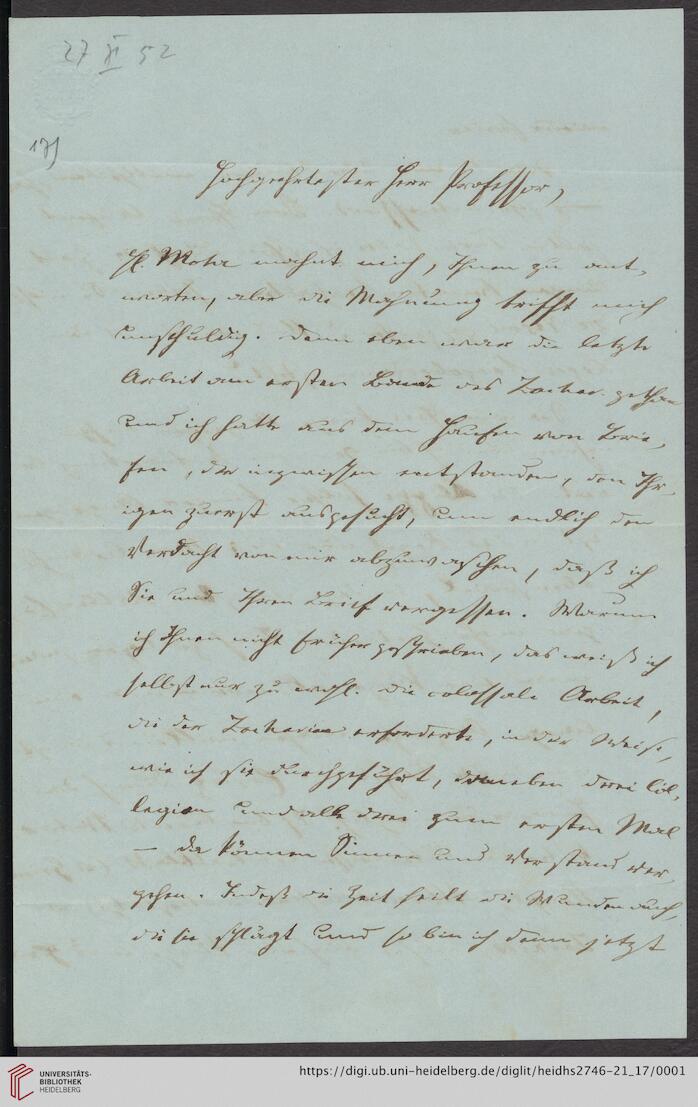 27 XI 52
175
Hochgeehrtester Herr Professor,
H. Mohr mahnt mich, Ihnen zu ant-
worten, aber die Mahnung trifft mich
unschuldig. Denn eben war die letzte
Arbeit am ersten Bande des Zachar. gethan
und ich hatte aus dem Haufen von Brie-
fen, der inzwischen entstanden, den Ihr-
igen zuerst ausgesucht, um endlich den
Verdacht von mir abzuwaschen, daß ich
Sie und Ihren Brief vergessen. Warum
ich Ihnen nicht früher geschrieben, das weiß ich
selbst nur zu wohl. Die colossale Arbeit,
die der Zachariae erforderte, in der Weise,
wie ich sie durchgeführt, daneben drei Col-
legien und alle drei zum ersten Mal
— da können Sinnen und Verstand ver-
gehen. Indeß die Zeit heilt die Wunden auch,
die sie schlägt und so bin ich denn jetzt
UNIVERSITÄTS-
BIBLIOTHEK
HEIDELBERG
https://digi.ub.uni-heidelberg.de/diglit/heidhs2746-21_17/0001